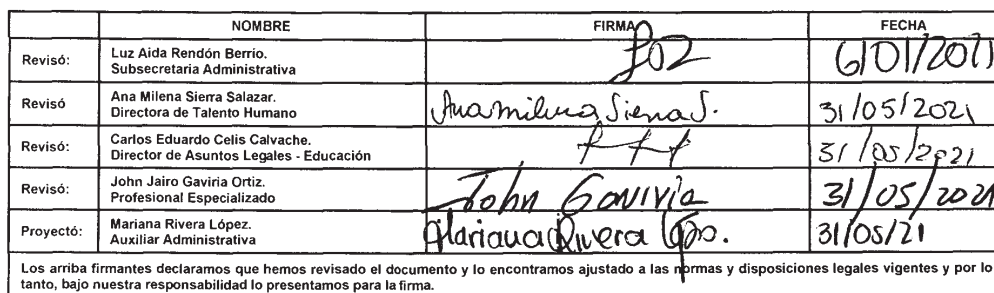 NOMBRE FIRMA FECHA
Revisó: Luz Aida Rendón Berrio. Subsecretaria Administrativa 6/01/2021
Revisó Ana Milena Sierra Salazar. Directora de Talento Humano Ana milena Sierra S. 31/05/2021
Revisó: Carlos Eduardo Celis Calvache. Director de Asuntos Legales - Educación 31/05/2021
Revisó: John Jairo Gaviria Ortiz. Profesional Especializado John Gaviria 31/05/2021
Proyectó: Mariana Rivera López. Auxiliar Administrativa Mariana Rivera 31/05/21
Los arriba firmantes declaramos que hemos revisado el documento y lo encontramos ajustado a las normas y disposiciones legales vigentes y por lo
tanto, bajo nuestra responsabilidad lo presentamos para la firma.